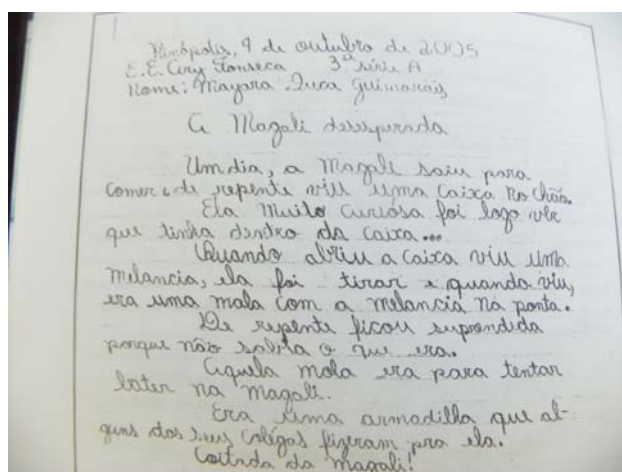 Penápolis, 9 de outubro de 2005
E.E. Ary Fonseca 3ª série A
Nome: Mayara Guimarães
A Magali desesperada
Um dia, a Magali saiu para
comer e de repente viu uma caixa no chão.
Ela muito curiosa foi logo ver
que tinha dentro da caixa...
Quando abriu a caixa viu uma
melancia, ela foi tirar e quando viu,
era uma mola com a melancia na ponta.
De repente ficou suprendida
porque não sabia o que era.
Aquela mola era para tentar
bater na Magali.
Era uma armadilha que al-
guns dos seus colegas fizeram pra ela.
Coitada da Magali!